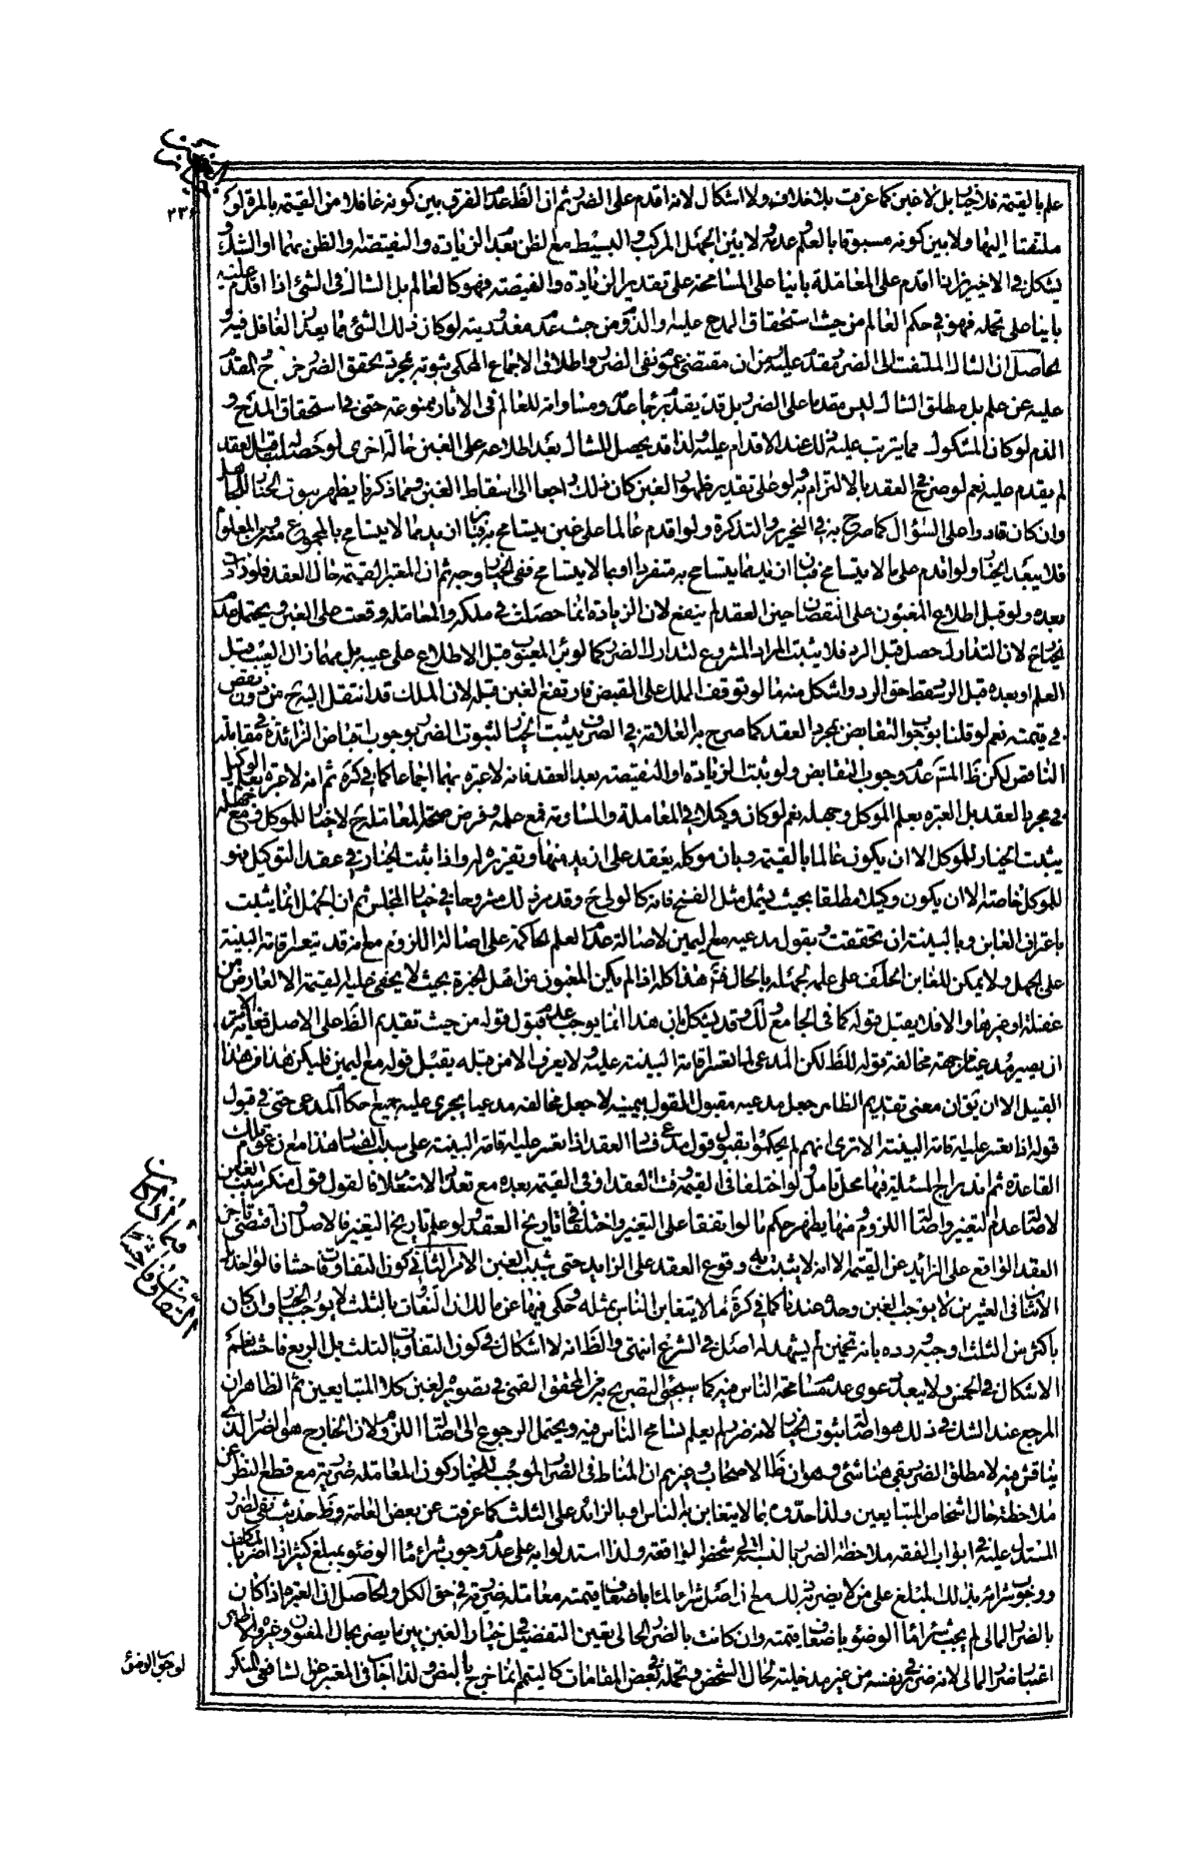 علم بالقيمة فلا خيار بل لا غبن كما عرفت بلا خلاف ولا اشكال لانه اقدم على الضرر ثم ان الظ عدم الفرق بين كونه غافلا من القيمة بالمرة او
ملتفتا اليها ولا بين كونه مسبوقا بالعلم وعدمه ولا بين الجهل المركب والبسيط مع الظن بعدم الزيادة والنقيصة والظن بهما او الشك و
يشكل في الاخيرين اذا اقدم على المعاملة بانيا على المسامحة على تقدير الزيادة والنقيصة فهو كالعالم بل الشاك في الشئ اذا اقدم عليه
بانيا على تحمله فهو في حكم العالم من حيث استحقاق المدح عليه والذم ومن حيث عدم معذوريته لو كان ذلك الشئ مما يعذر الغافل فيه و
الحاصل ان الشاك الملتفت الى الضرر مقدم عليه من ان مقتضى عموم نفى الضرر واطلاق الاجماع المحكى ثبوته بمجرد تحقق الضرر خرج المقدم
عليه عن علم بل مطلق الشاك ليس مقدما على الضرر بل قد يقدم برجاء عدمه ومساواته للعالم في الاثار ممنوعة حتى في استحقاق المدح و
الذم لو كان المشكوك مما يترتب عليه ذلك عند الاقدام عليه ولذا قد يحصل للشاك بعد اطلاعه على الغبن حالة اخرى لو حصلت له قبل العقد
لم يقدم عليه نعم لو صرح في العقد بالالتزام به ولو على تقدير ظهور الغبن كان ذلك راجعا الى اسقاط الغبن ومما ذكرنا يظهر ثبوت الخيار للجاهل
وان كان قادرا على السؤال كما صرح به في التحرير والتذكرة ولو اقدم عالما على غبن يتسامح به فبان ازيد بما لا يتسامح بالمجموع منه ومن المعلوم
فلا يبعد الخيار ولو اقدم على ما لا يتسامح فبان ازيد بما يتسامح به منفردا او بما لا يتسامح ففى الخيار وجه ثم ان المعتبر القيمة حال العقد فلو زادت
بعده ولو قبل اطلاع المغبون على النقصان حين العقد لم ينفع لان الزيادة انما حصلت في ملكه والمعاملة وقعت على الغبن ويحتمل عدم
الخيار ح لان التدارك حصل قبل الرد فلا يثبت الرد المشروع لتدارك الضرر كما لو برئ المعيوب قبل الاطلاع على عيبه بل مهما زال العيب قبل
العلم او بعده قبل الرد سقط حق الرد واشكل منه ما لو توقف الملك على القبض فارتفع الغبن قبله لان الملك قد انتقل اليه ح من دون نقص
في قيمته نعم لو قلنا بوجوب التقابض بمجرد العقد كما صرح به العلامة في الصرف يثبت الخيار لثبوت الضرر بوجوب اقباض الزائد في مقابلة
الناقص لكن ظ المش عدم وجوب التقابض ولو ثبت الزيادة او النقيصة بعد العقد فانه لا عبرة بهما اجماعا كما في كره ثم انه لا عبرة بعلم الوكيل
في مجرد العقد بل العبرة بعلم الموكل وجهله نعم لو كان وكيلا في المعاملة والمساومة فمع علمه وفرض صحة المعاملة ح لا خيار للموكل ومع جهله
يثبت الخيار للموكل الا ان يكون عالما بالقيمة وبان موكله يعقد على ازيد منها ويقرره له واذا ثبت الخيار في عقد الوكيل فهو
للموكل خاصة الا ان يكون وكيلا مطلقا بحيث يشمل مثل الفسخ فانه كالولى ح وقد مر ذلك مشروحا في خيار المجلس ثم ان الجهل انما يثبت
باعتراف الغابن وبالبينة ان تحققت وبقول مدعيه مع اليمين لاصالة عدم العلم الحاكمة على اصالة اللزوم مع انه قد يتعسر اقامة البينة
على الجهل ولا يمكن للغابن الحلف على علمه لجهله بالحال فتأمل هذا كله اذا لم يكن المغبون من اهل الخبرة بحيث لا يخفى عليه القيمة الا لعارض من
غفلة او غيرها والا فلا يقبل قوله كما في الجامع ولك وقد يشكل بان هذا انما يوجب عدم قبول قوله من حيث تقديم الظ على الاصل فغاية الامر
ان يصير مدعيا من جهة مخالفة قوله للظ لكن المدعى لما تعسر اقامة البينة عليه ولا يعرف الا من قبله يقبل قوله مع اليمين فليكن هذا من هذا
القبيل الا ان يق ان معنى تقديم الظاهر جعل مدعيه مقبول القول بيمينه لا جعل مخالفه مدعيا يجرى عليه جميع احكام المدعى حتى في قبول
قوله اذا تعسر عليه اقامة البينة الا ترى انهم لم يحكموا بقبول قول مدعى فساد العقد اذا تعسر عليه اقامة البينة على سبب الفساد هذا مع ان عموم تلك
القاعدة ثم اندراج المسئلة فيها محل تامل ولو اختلفا في القيمة وقت العقد او في القيمة بعده مع تعذر الاستعلام فالقول قول منكر سبب الغبن
لاصالة عدم التغير واصالة اللزوم ومنها يظهر حكم ما لو اتفقا على التغير واختلفا في تاريخ العقد ولو علم تاريخ التغير فالاصل وان اقتضى تاخر
العقد الواقع على الزائد عن القيمة الا انه لا يثبت به وقوع العقد على الزايد حتى يثبت الغبن الامر الثاني كون التفاوت فاحشا فالواحد بل
الاثنان في العشرين لا يوجب الغبن وحده عندنا كما في كره ما لا يتغابن الناس بمثله وحكى فيها عن مالك ان التفاوت بالثلث لا يوجب الخيار وان كان
باكثر من الثلث اوجبه ورده بانه تخمين لم يشهد له اصل في الشرع انتهى والظ انه لا اشكال في كون التفاوت بالثلث بل الربع فاحشا نعم
الاشكال في الخمس ولا يبعد دعوى عدم مسامحة الناس فيه كما سيجئ التصريح به من المحقق القمى في تصويره لغبن كلا المتبايعين ثم الظاهر ان
المرجع عند الشك في ذلك هو اصالة ثبوت الخيار لانه ضرر لم يعلم تسامح الناس فيه ويحتمل الرجوع الى اصالة اللزوم لان الخارج هو الضرر الذي
يناقش فيه لا مطلق الضرر بقى هنا شئ وهو ان ظ الاصحاب وغيرهم ان المناط في الضرر الموجب للخيار كون المعاملة ضررية مع قطع النظر عن
ملاحظة حال اشخاص المتبايعين ولذا حدوه بما لا يتغابن به الناس او بالزائد على الثلث كما عرفت عن بعض العامة وظ حديث نفى الضرر
المستدل عليه في ابواب الفقه ملاحظة الضرر بالنسبة الى شخص الواقعة ولذا استدلوا به على عدم وجوب شراء ماء الوضوء بمبلغ كثير اذا اضر بالمكلف
ووجوب شرائه بذلك المبلغ على من لا يضر به ذلك مع ان اصل شراء الماء باضعاف قيمته معاملة ضررية في حق الكل والحاصل ان العبرة اذا كان
بالضرر المالى لم يجب شراء ماء الوضوء باضعاف قيمته وان كانت بالضرر الحالى تعين التفصيل في خيار الغبن بين ما يضر بحال المغبون وغيره والاظهر
اعتبار الضرر المالى لانه ضرر في نفسه من غير مدخلية لحال الشخص وتحمله في بعض المقامات كاليتيم انما خرج بالنص ولذا اجاب في المعتبر عن الشافعى المنكر
فيما اذا كان
التفاوت فاحشا
لوجوب الوضوء